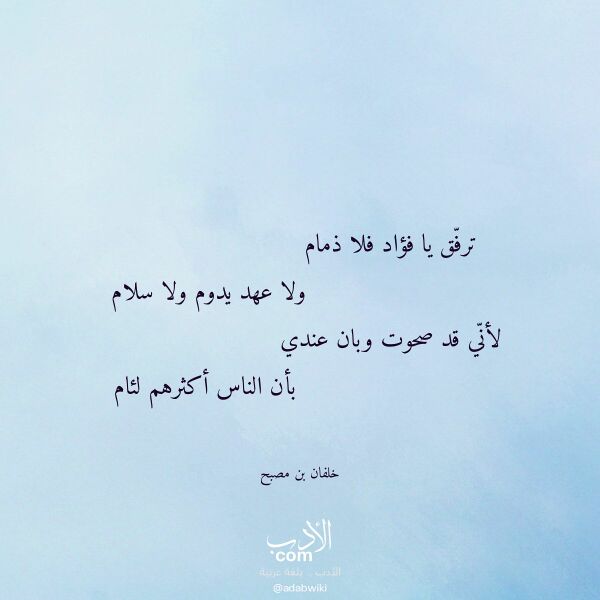 ترفّق يا فؤاد فلا ذمام
ولا عهد يدوم ولا سلام
لأنّي قد صحوت وبان عندي
بأن الناس أكثرهم لئام
خلفان بن مصبح
الأدب
com
الأدب .. بلغة عربية
@adabwiki